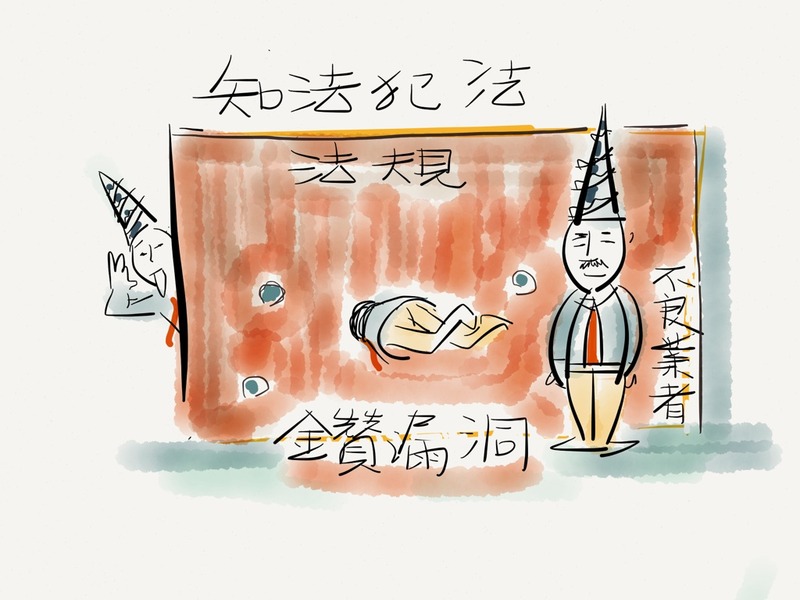 知法犯法
法規
不良業者
鑽漏洞